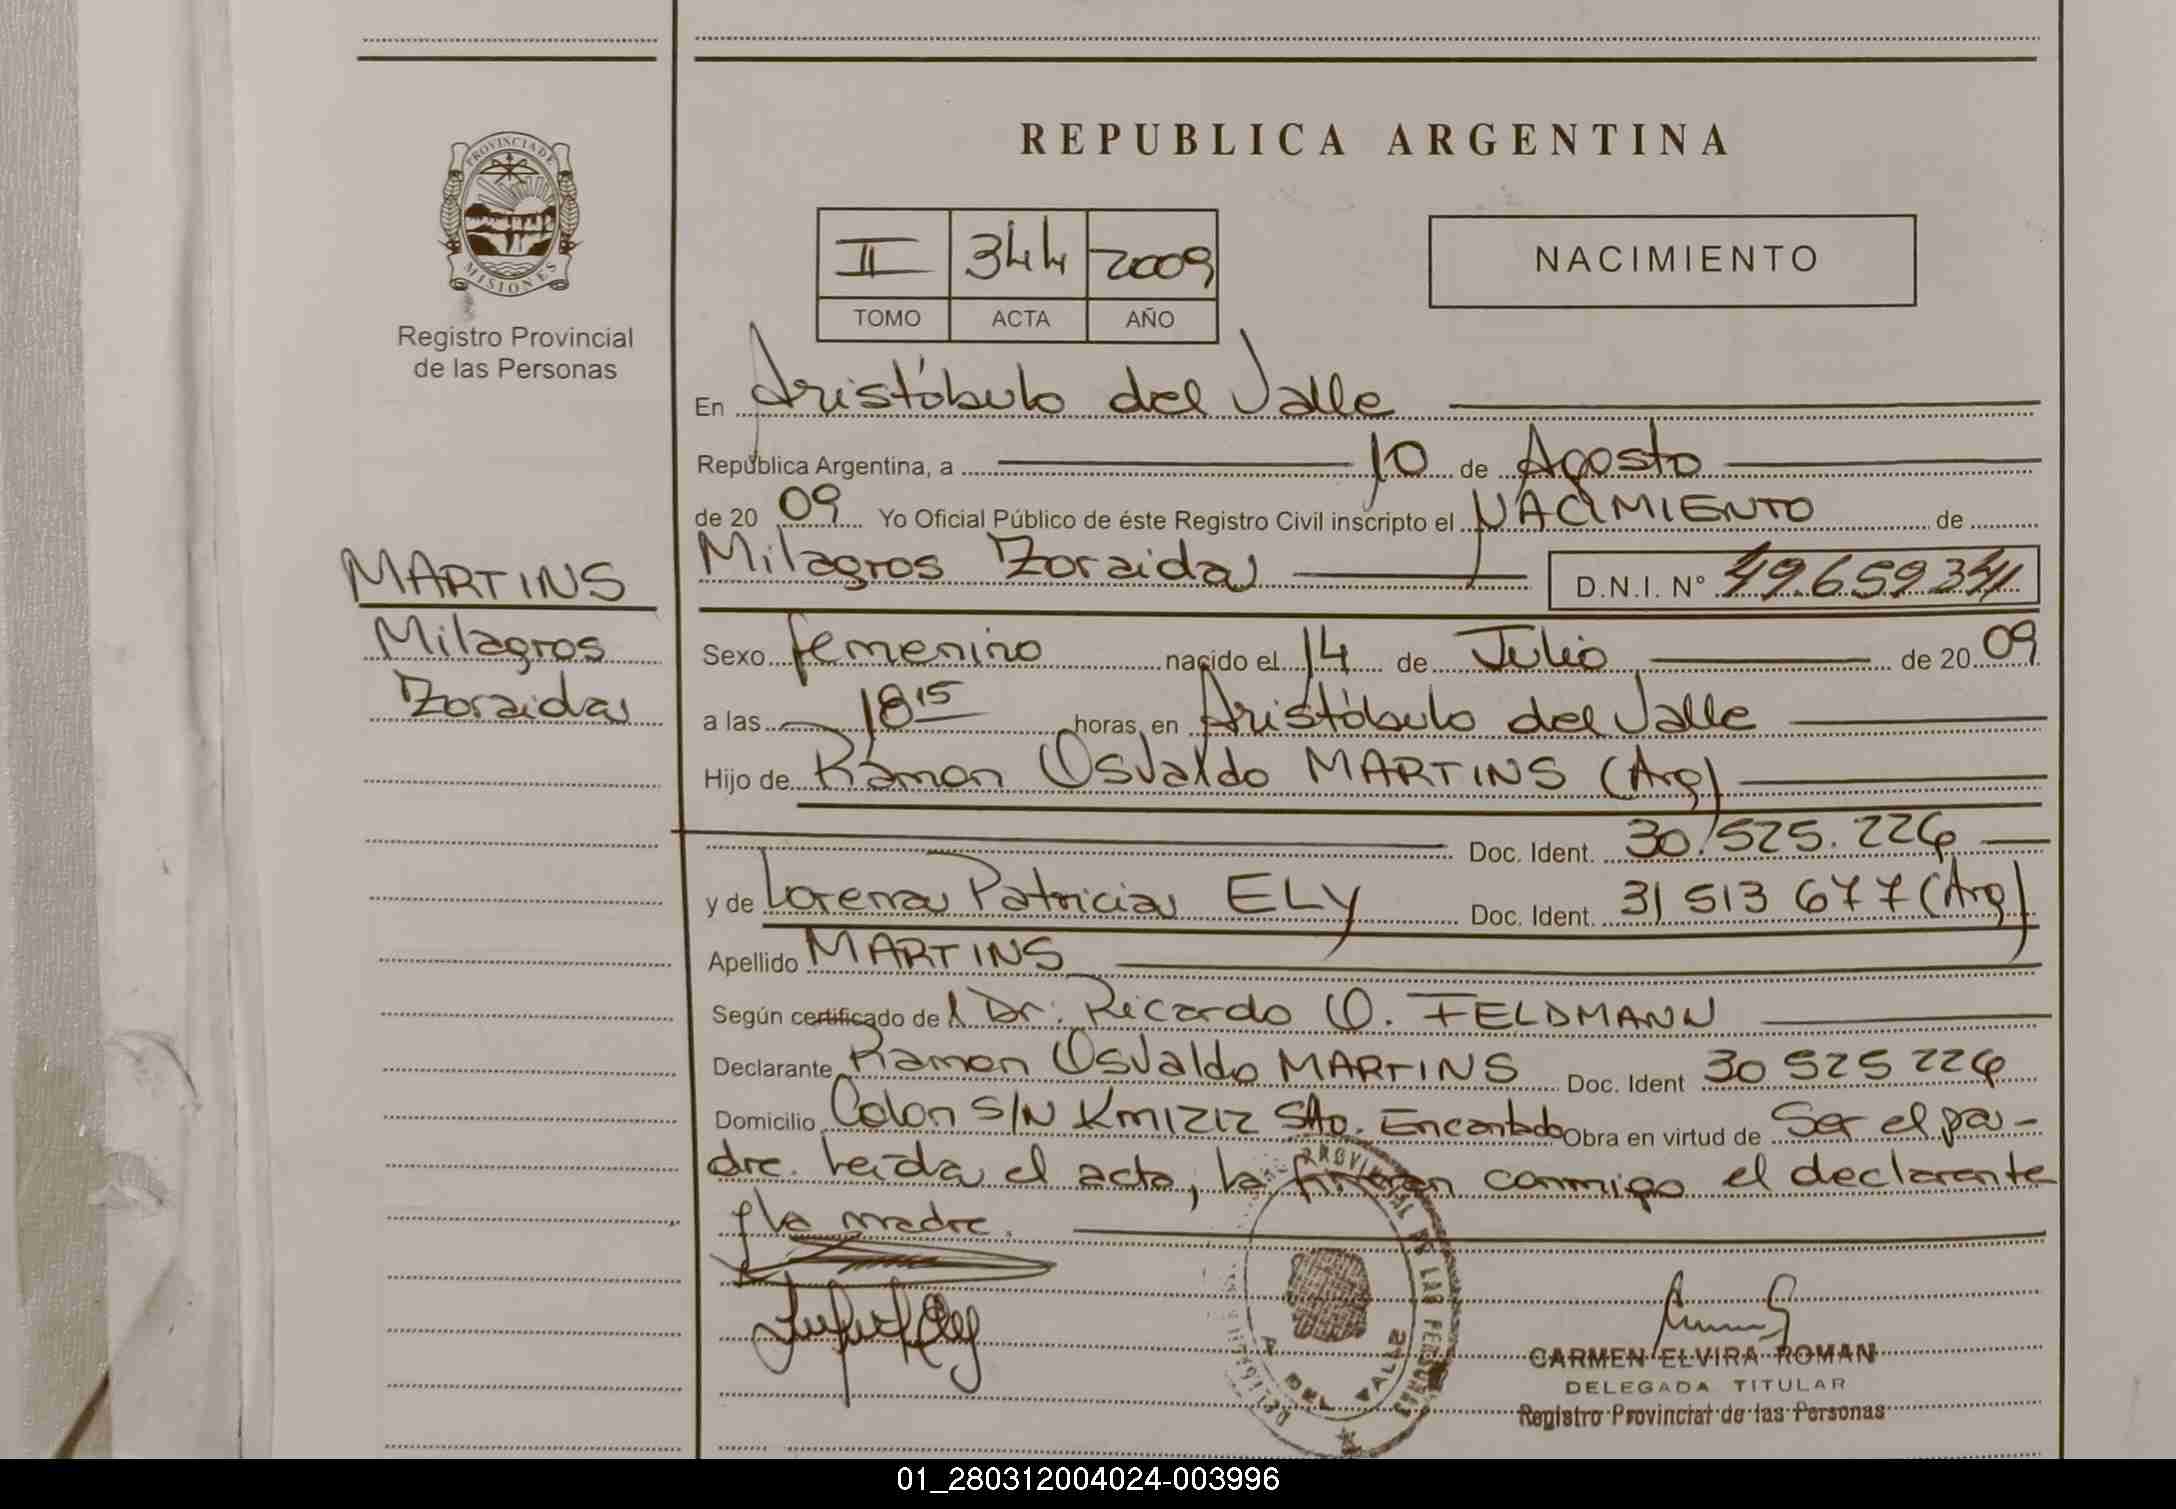 REPUBLICA ARGENTINA
PROVINCIA DE
MISIONES
II 344 2009
TOMO ACTA AÑO
NACIMIENTO
Registro Provincial
de las Personas
MARTINS
Milagros
Zoraida
En Aristóbulo del Valle
República Argentina, a 10 de Agosto
de 20 09 Yo Oficial Público de éste Registro Civil inscripto el NACIMIENTO de
Milagros Zoraida D.N.I. Nº 49.659.341.
Sexo femenino nacido el 14 de Julio de 20 09
a las 18 15 horas, en Aristóbulo del Valle
Hijo de Ramon Osvaldo MARTINS (Arg)
Doc. Ident. 30.525.226
y de Lorena Patricia ELY Doc. Ident. 31 513 677 (Arg)
Apellido MARTINS
Según certificado de l Dr. Ricardo O. FELDMANN
Declarante Ramon Osvaldo MARTINS Doc. Ident 30 525 226
Domicilio Colon S/N Km1212 Sto. Encantado Obra en virtud de Ser el pa-
dre. Leida el acta, la firman conmigo el declarante
y la madre.
PROVINCIAL DE LAS PERSONAS
A. DEL VALLE
CARMEN ELVIRA ROMAN
DELEGADA TITULAR
Registro Provincial de las Personas
01_280312004024-003996